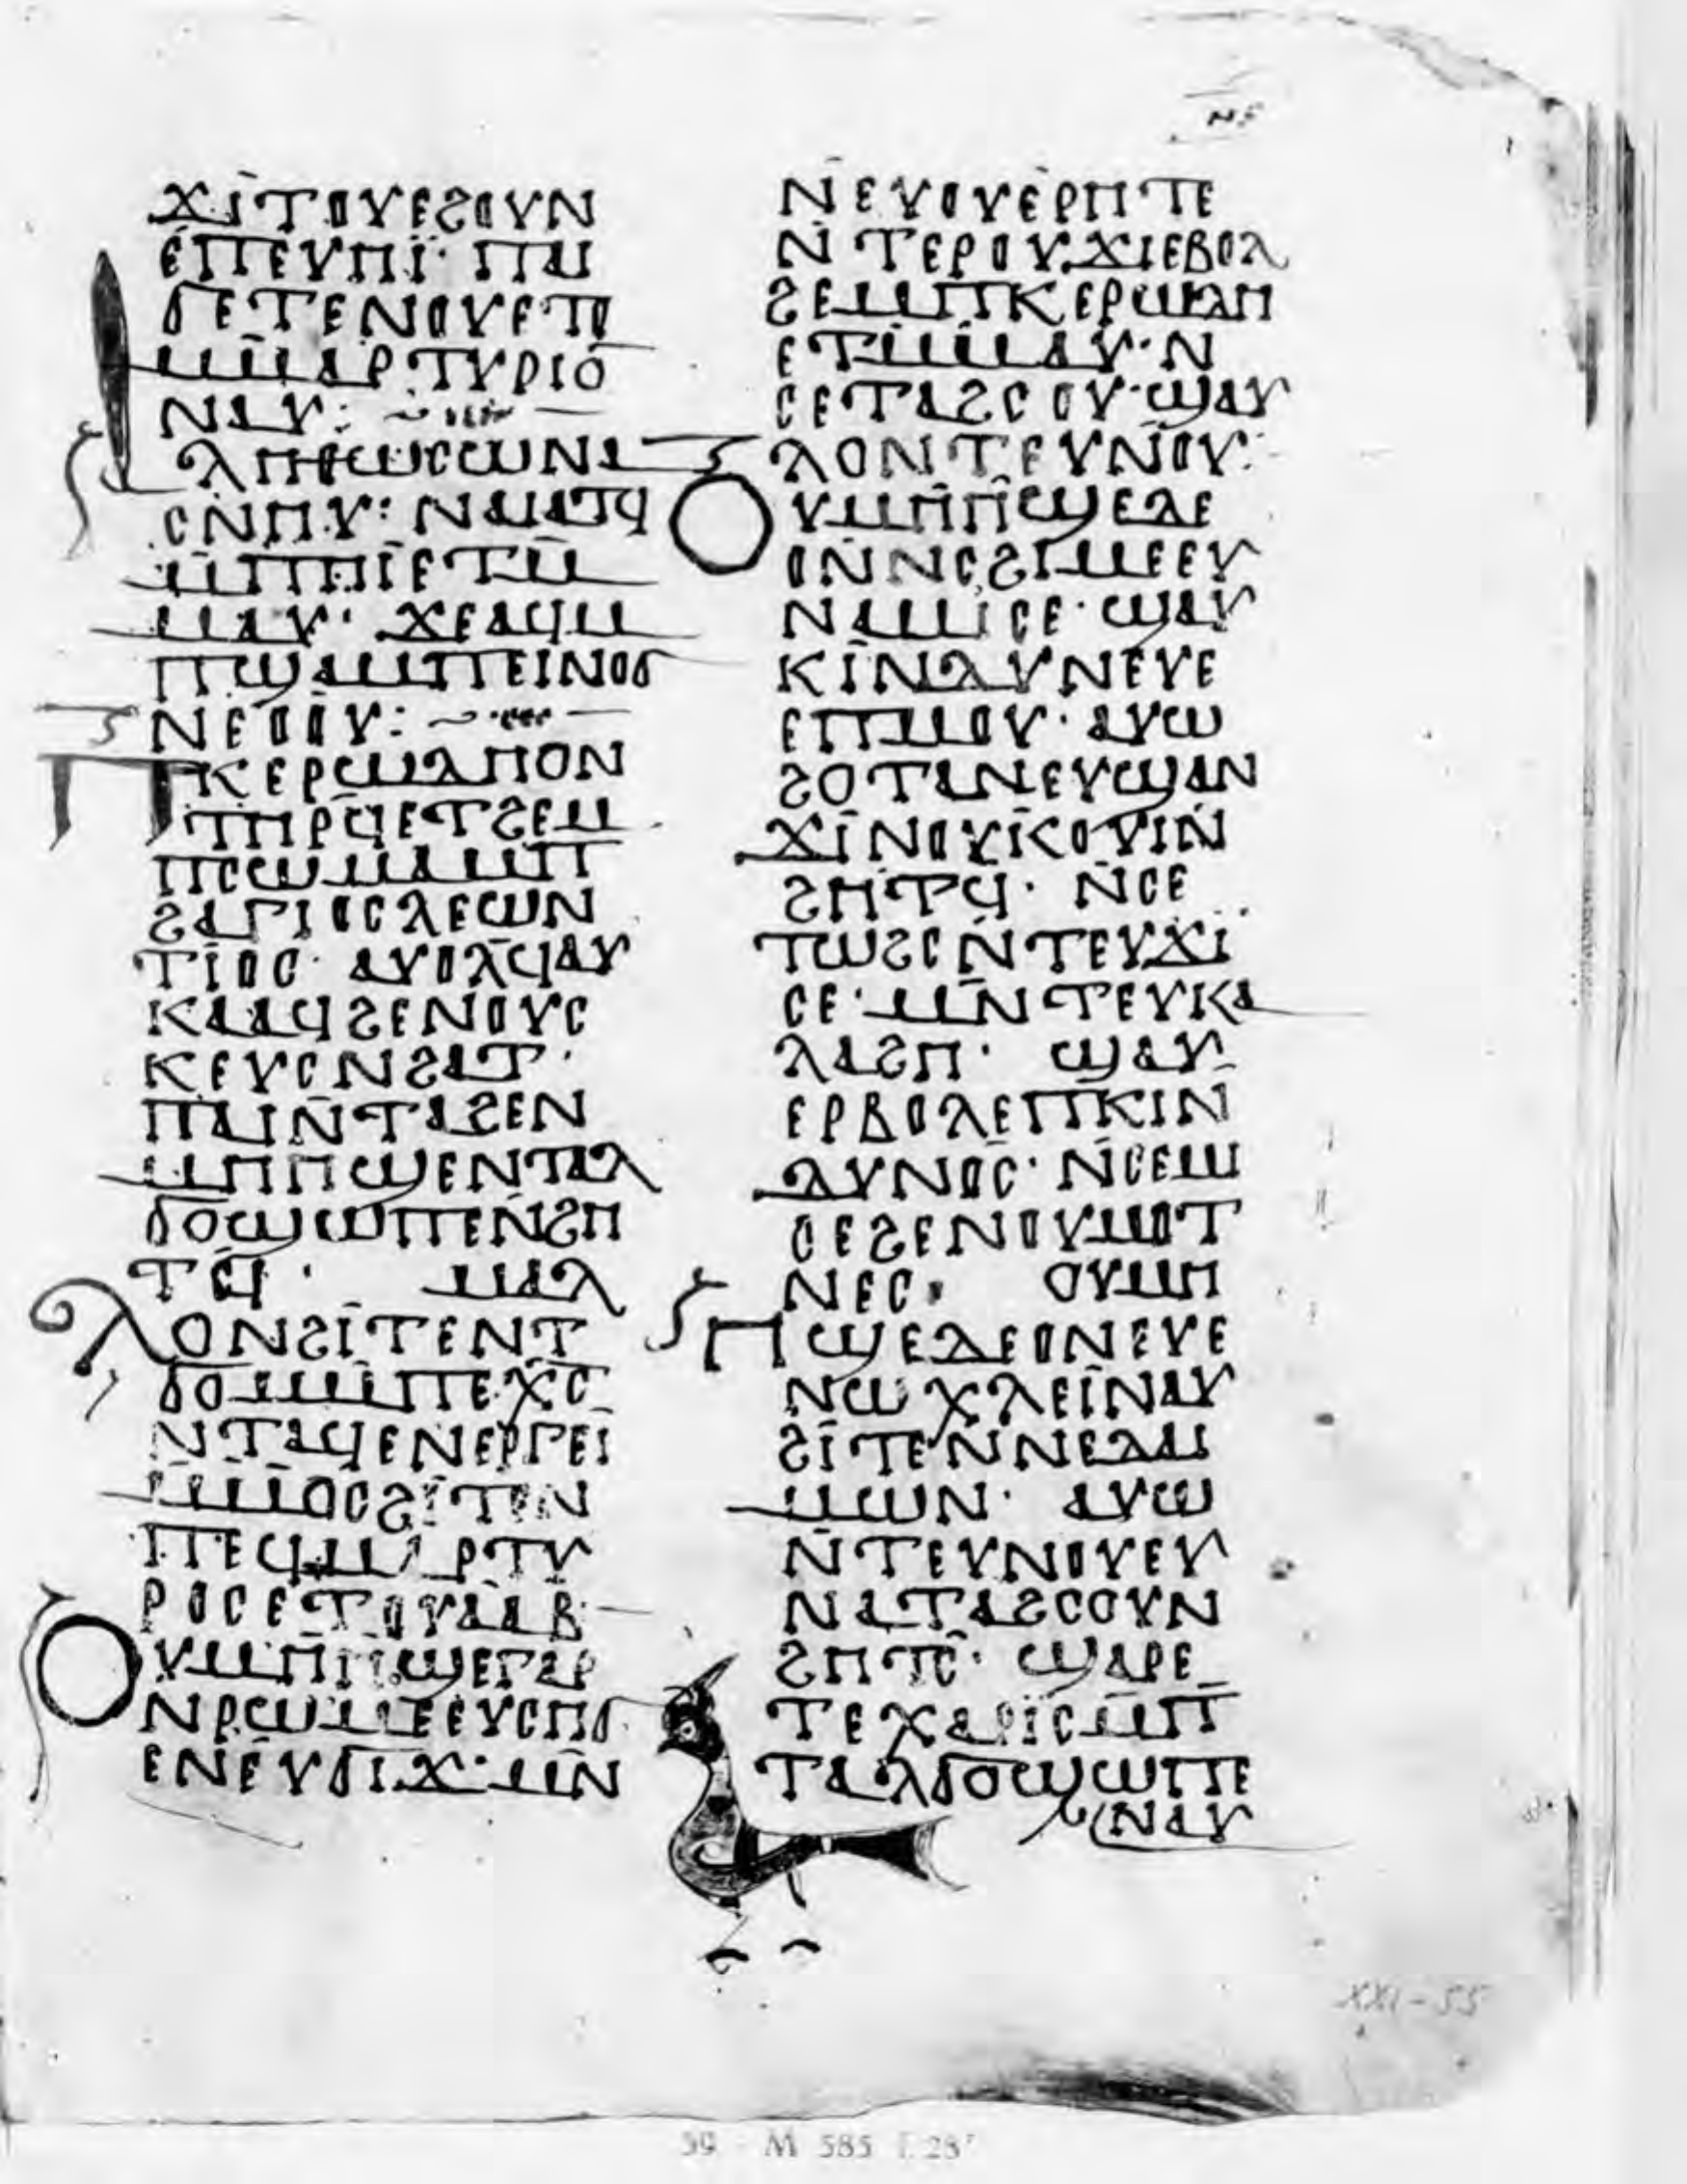 ⲛⲉ
ϫⲓⲧⲟⲩⲉϩⲟⲩⲛ
ⲉⲡⲉⲩⲏⲓ· ⲡⲁⲓ
ϭⲉⲧⲉⲛⲟⲩⲉⲧⲟ
ⲙ̄ⲙⲁⲣⲧⲩⲣⲓⲟ̄
ⲛⲁⲩ:
ⲁⲗⲏⲑⲱⲥⲱⲛⲁ
ⲥⲛⲏⲩ: ⲛⲁⲓⲁⲧϥ
ⲙ̄ⲡⲏⲓⲉⲧⲙ̄
ⲙⲁⲩ· ϫⲉⲁϥⲙ
ⲡϣⲁⲙⲡⲉⲓⲛⲟϭ
ⲛⲉⲟⲟⲩ:
ⲡⲕⲉⲣⲱⲙⲁⲏⲟⲛ
ⲧⲏⲣϥⲉⲧϩⲉⲙ
ⲡⲥⲱⲙⲁⲙⲡ
ϩⲁⲅⲓⲟⲥⲗⲉⲱⲛ
ⲧⲓⲟⲥ· ⲁⲩⲟⲗϥⲁⲩ
ⲕⲁⲁϥϩⲉⲛⲟⲩⲥ
ⲕⲉⲩⲟⲥⲛϩⲁⲧ·
ⲡⲁⲓⲛ̄ⲧⲁϩⲉⲛ
ⲙⲏⲏϣⲉⲛⲧⲁⲗ
ϭⲟϣⲱⲡⲉⲛ̄ϩⲏ
ⲧϥ̄· ⲙⲁⲗ
ⲗⲟⲛϩⲓⲧⲉⲛⲧ
ϭⲟⲙⲙ̄ⲡⲉⲭ̄ⲥ̄
ⲛⲧⲁϥⲉⲛⲉⲣⲅⲉⲓ
ⲙ̄ⲙⲟⲥϩⲓⲧⲉⲛ
ⲡⲉϥⲙⲁⲣⲧⲩ
ⲣⲟⲥⲉⲧⲟⲩⲁⲁⲃ
ⲟⲩⲙⲏⲏϣⲉⲅⲁⲣ
ⲛⲣⲱⲙⲉⲉⲩⲥⲏϭ
ⲉⲛⲉⲩϭⲓϫ· ⲙⲛ̄
ⲛⲉⲩⲟⲩⲉⲣⲏⲧⲉ
ⲛ̄ⲧⲉⲣⲟⲩϫⲓⲉⲃⲟⲗ
ϩⲉⲙⲡⲕⲉⲣⲱⲙⲁⲏ
ⲉⲧⲙ̄ⲙⲁⲩ· ⲛ
ⲥⲉⲧⲁϩⲥⲟⲩ· ϣⲁⲩ
ⲗⲟⲛⲧⲉⲩⲛⲟⲩ:
ⲟⲩⲙⲏⲏϣⲉⲇⲉ
ⲟⲛⲛⲥϩⲓⲙⲉⲉⲩ
ⲛⲁⲙⲓⲥⲉ· ϣⲁⲩ
ⲕⲓⲛⲇⲩⲛⲉⲩⲉ
ⲉⲡⲙⲟⲩ· ⲁⲩⲱ
ϩⲟⲧⲁⲛⲉⲩϣⲁⲛ
ϫⲓⲛⲟⲩⲕⲟⲩⲓⲛ̄
ϩⲏⲧϥ· ⲛ̄ⲥⲉ
ⲧⲱϩⲥⲛ̄ⲧⲉⲩϫⲓ
ⲥⲉ· ⲙⲛ̄ⲧⲉⲩⲕⲁ
ⲗⲁϩⲏ· ϣⲁⲩ
ⲉⲣⲃⲟⲗⲉⲡⲕⲓⲛ
ⲇⲩⲛⲟⲥ· ⲛ̄ⲥⲉⲙ
ⲟⲉϩⲉⲛⲟⲩⲙⲟⲧ
ⲛⲉⲥ· ⲟⲩⲙⲏ
ⲏϣⲉⲇⲉⲟⲛⲉⲩⲉ
ⲛⲱⲭⲗⲉⲓⲛⲁⲩ
ϩⲓⲧⲉⲛⲛⲉⲇⲁⲓ
ⲙⲱⲛ· ⲁⲩⲱ
ⲛ̄ⲧⲉⲩⲛⲟⲩⲉⲩ
ⲛⲁⲧⲁϩⲥⲟⲩⲛ
ϩⲏⲧⲥ̄· ϣⲁⲣⲉ
ⲧⲉⲭⲁⲣⲓⲥⲙⲡ
ⲧⲁⲗϭⲟϣⲱⲡⲉ
ⲛⲁⲩ
XXI-55
59 - M 585 f. 28ʳ